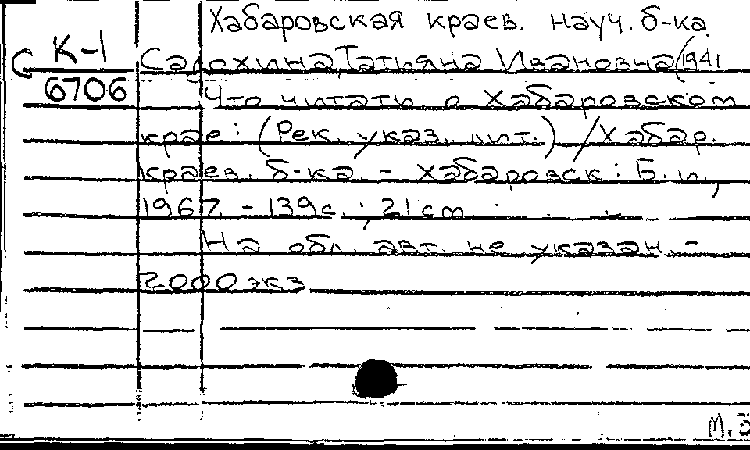 Хабаровская краев. науч. б-ка
К-1
6706
Сапохина, Татьяна Ивановна (1941
Что читать о Хабаровском
крае: (Рек. указ. лит.) / Хабар.
краев. б-ка. - Хабаровск: Б. и.,
1967. - 139 с.; 21 см
На обл. авт. не указан. -
2000 экз